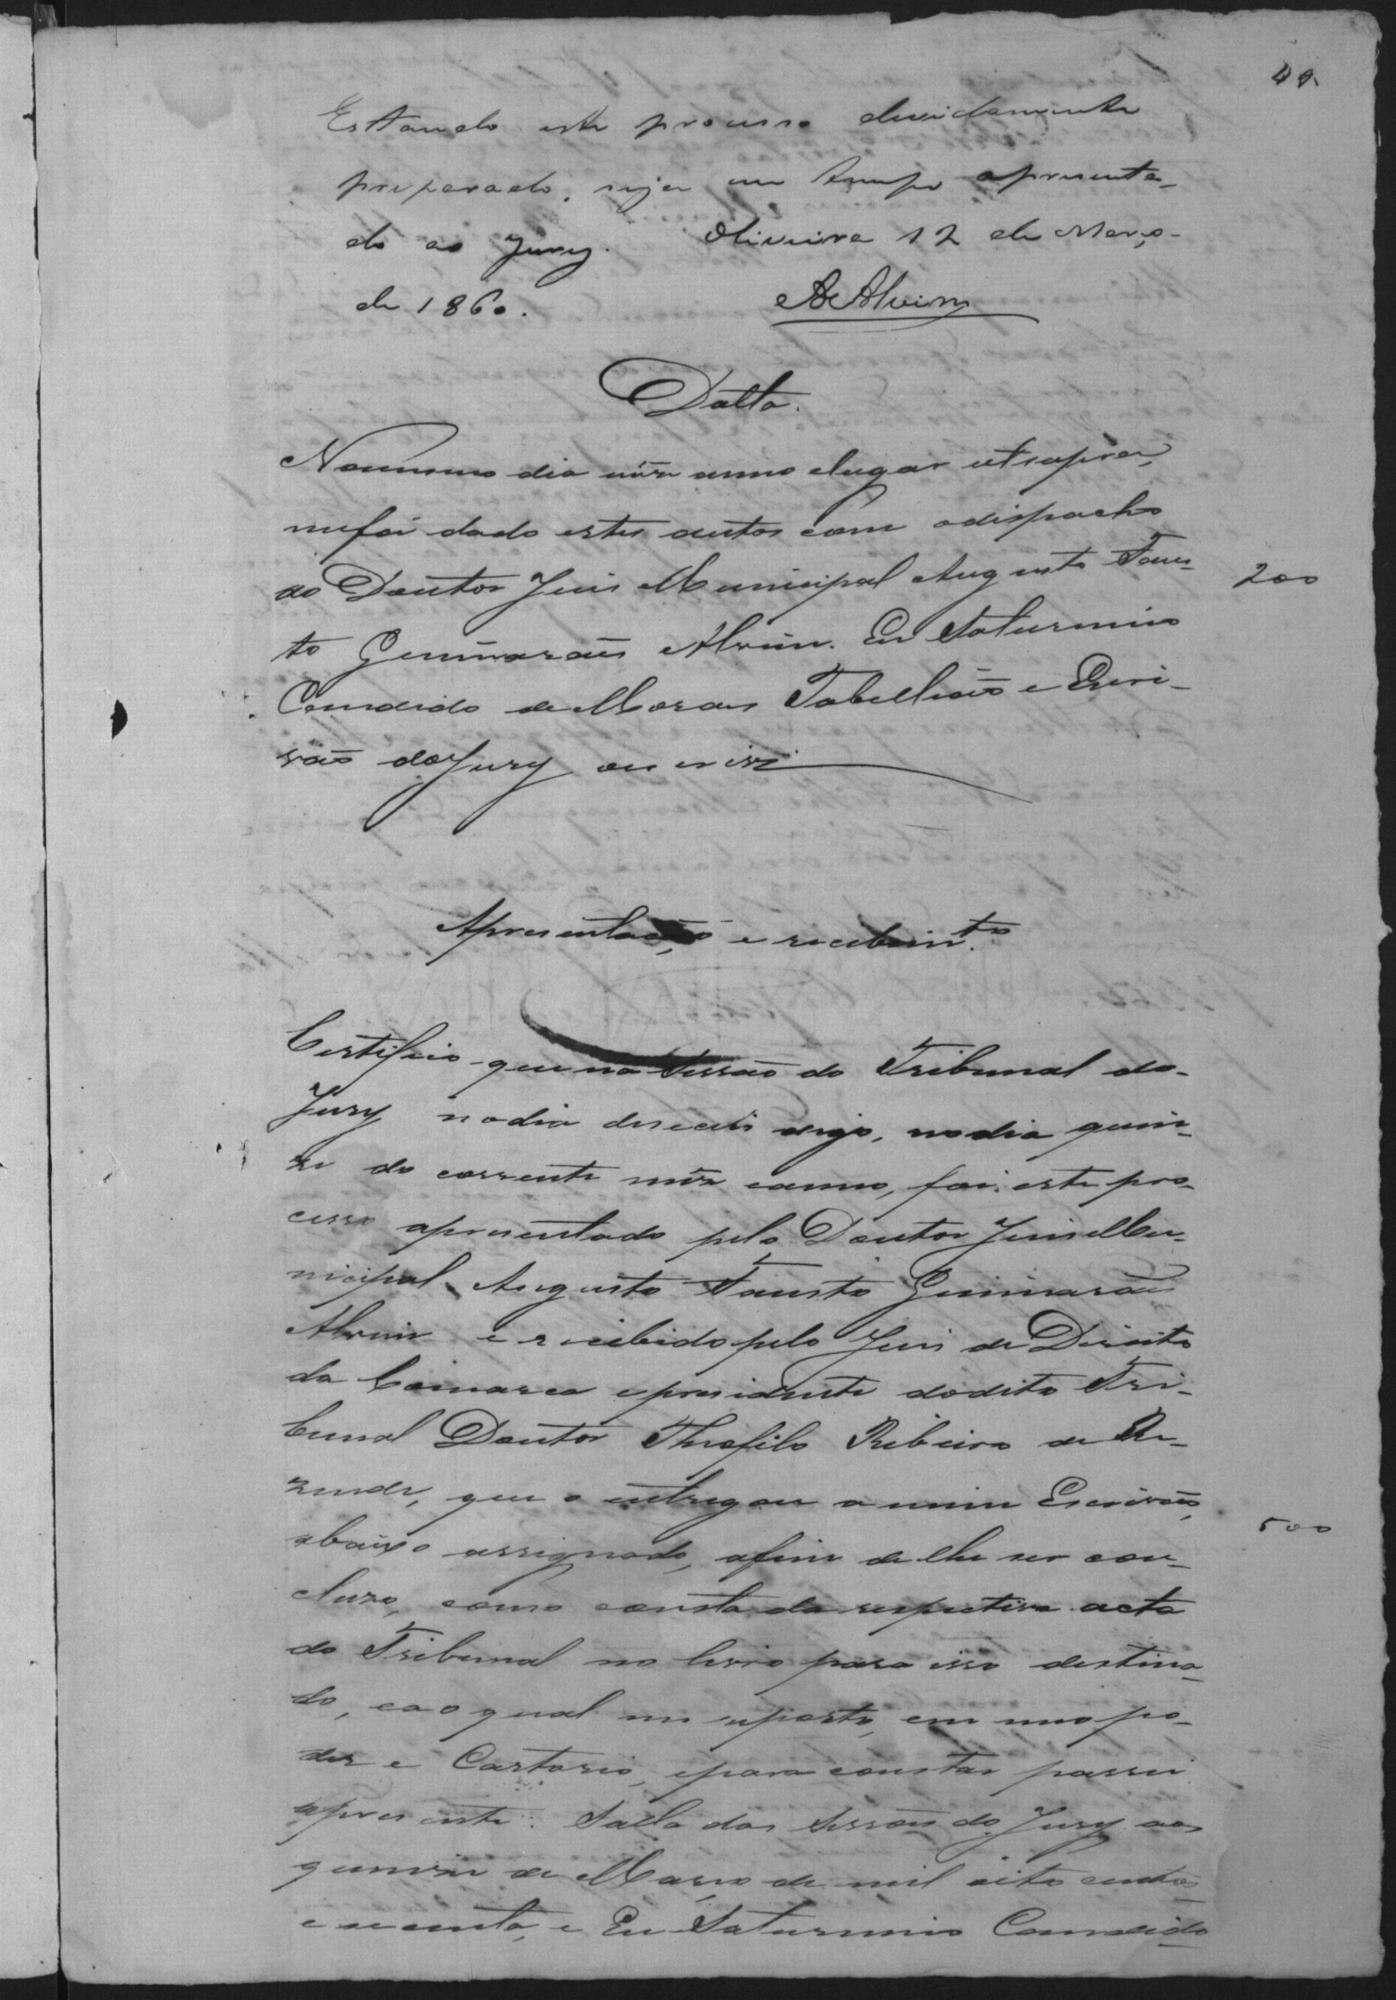 49
Estando este processo devidamente
preparado, seja em tempo apresenta-
do ao Jury. Oliveira 12 de Março
de 1860. A Alvim
Datta.
Nomesmo dia mêz anno elugar utsupra,
mefoi dado estes autos com odispacho
do Doutor Juis Municipal Augusto Faus-
200
to Guimarães Alvim. Eu Saturnino
Candido de Moraes Tabellião e Escri-
vão doJury oescrivi
Apresentação e recebim.to
Certifico que na Sessão do Tribunal do-
Jury nodia deseceis digo, nodia quin-
ze do corrente mêz eanno, foi este pro-
cesso apresentado pelo Doutor Juis Mu-
nicipal Augusto Fausto Guimarães
Alvim e recebido pelo Juis de Direito
da Comarca epresidente dodito Tri-
bunal Doutor Theofilo Ribeiro de Re-
zende, que o entregou a mim Escrivão,
abaixo assignado, afim de lhe ser con-
500
cluzo, como consta da respectiva acta
do Tribunal no livro para isso destina-
do, eaoqual me reporto, em meo po-
der e Cartorio, epara constar passei
apresente. Salla das Sessões do Jury aos
quinze de Março de mil oito centos
e secenta, e Eu Saturnino Candido